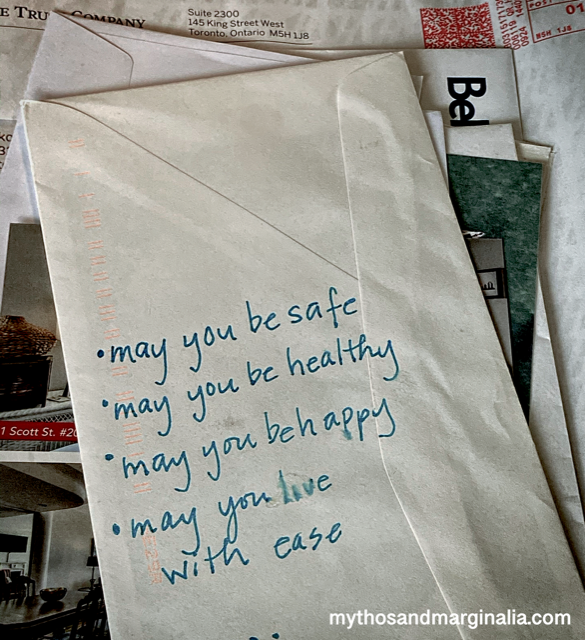 TRUST COMPANY
Suite 2300
145 King Street West
Toronto, Ontario M5H 1J8
01
M5H 1J8
Bel
1 Scott St. #20
• may you be safe
• may you be healthy
• may you be happy
• may you live
with ease
mythosandmarginalia.com